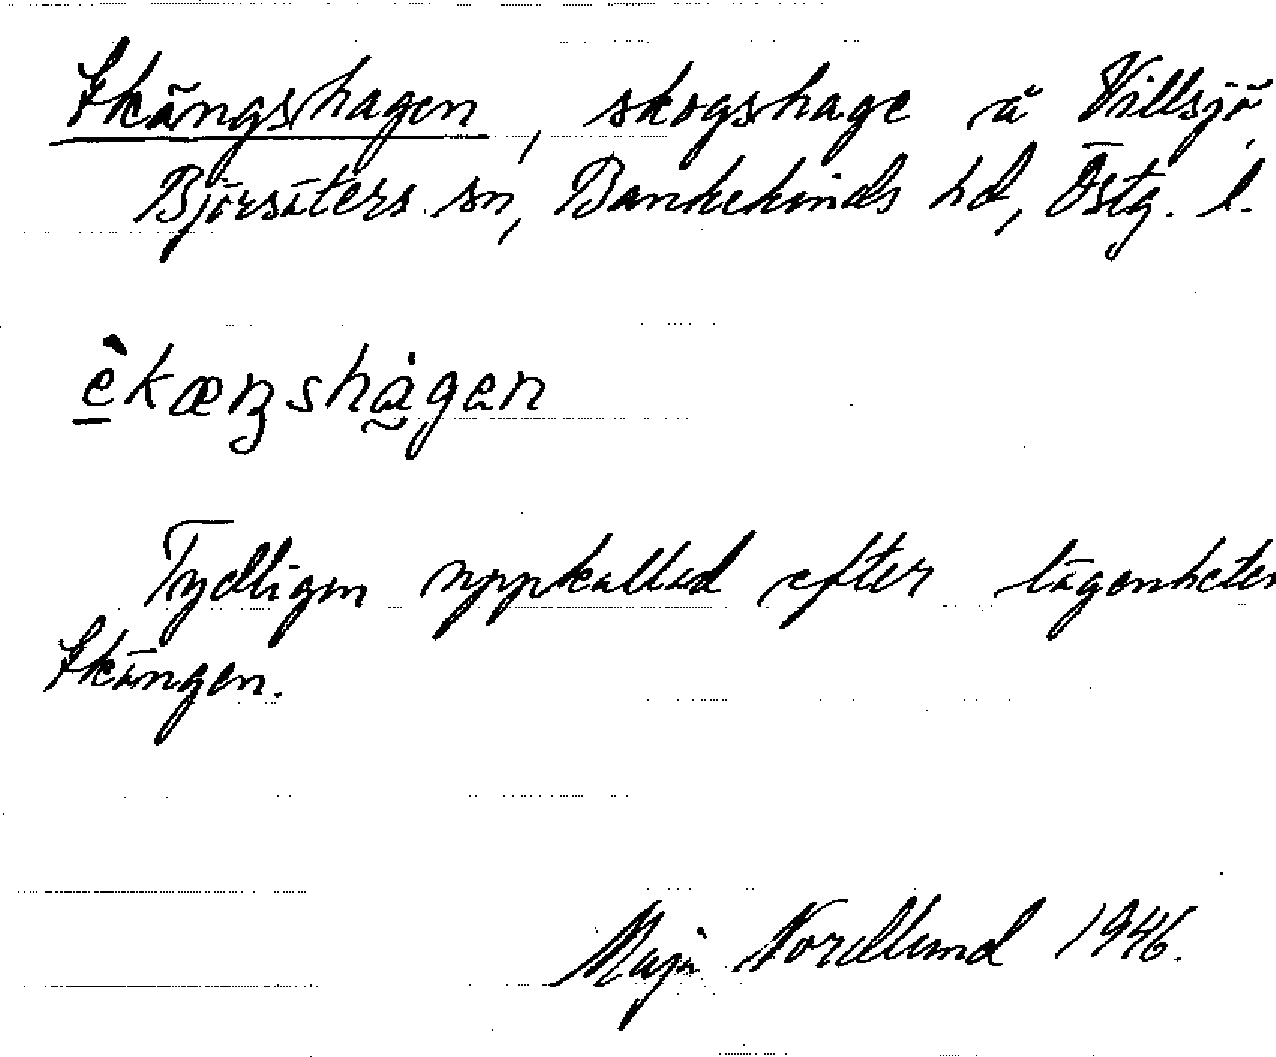 Ekängshagen, skogshage å Villsjö,
Björsäters sn, Bankekinds hd, Östg. l.
èkæŋshàgen
Tydligen uppkallad efter lägenheten
Ekängen.
Maja Nordlund 1946.